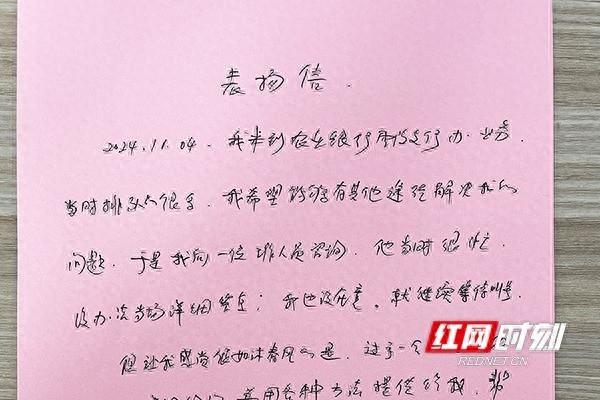 表扬信.
2024.11.04. 我来到农业银行支行办业务.
当时排队人很多. 我希望能够有其他途径解决我的
问题. 于是我向一位工作人员咨询. 他当时很忙.
没办法当场详细答复; 我也没在意. 就继续等待叫号.
但让我感觉很如沐春风的是. 过了一会
用各种方法提供给我.
红网时刻
REDNET.CN